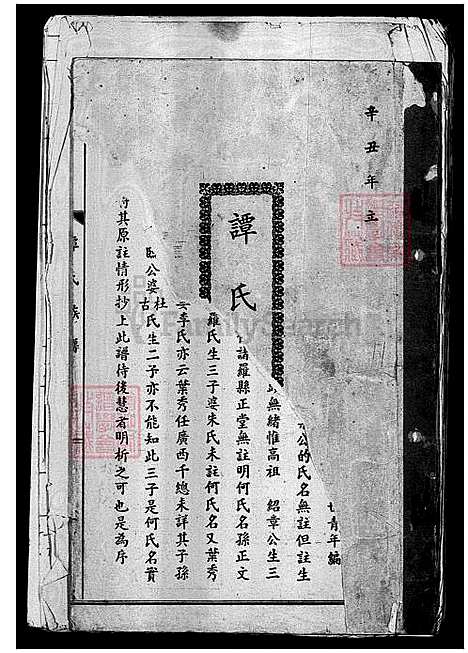 辛丑年立
青年編
公的氏名無註但註生
無緒惟高祖 紹章公生三
譚氏
諸羅縣正堂無註明何氏名孫正文
羅氏生三子婆朱氏未註何氏名又葉秀
李氏亦云葉秀任廣西千總未詳其子孫
杜氏生二子亦不能知此三子是何氏名實
公婆古
將其原註情形抄上此譜侍後慧者明析之可也是為序
譚氏族譜
FamilySearch